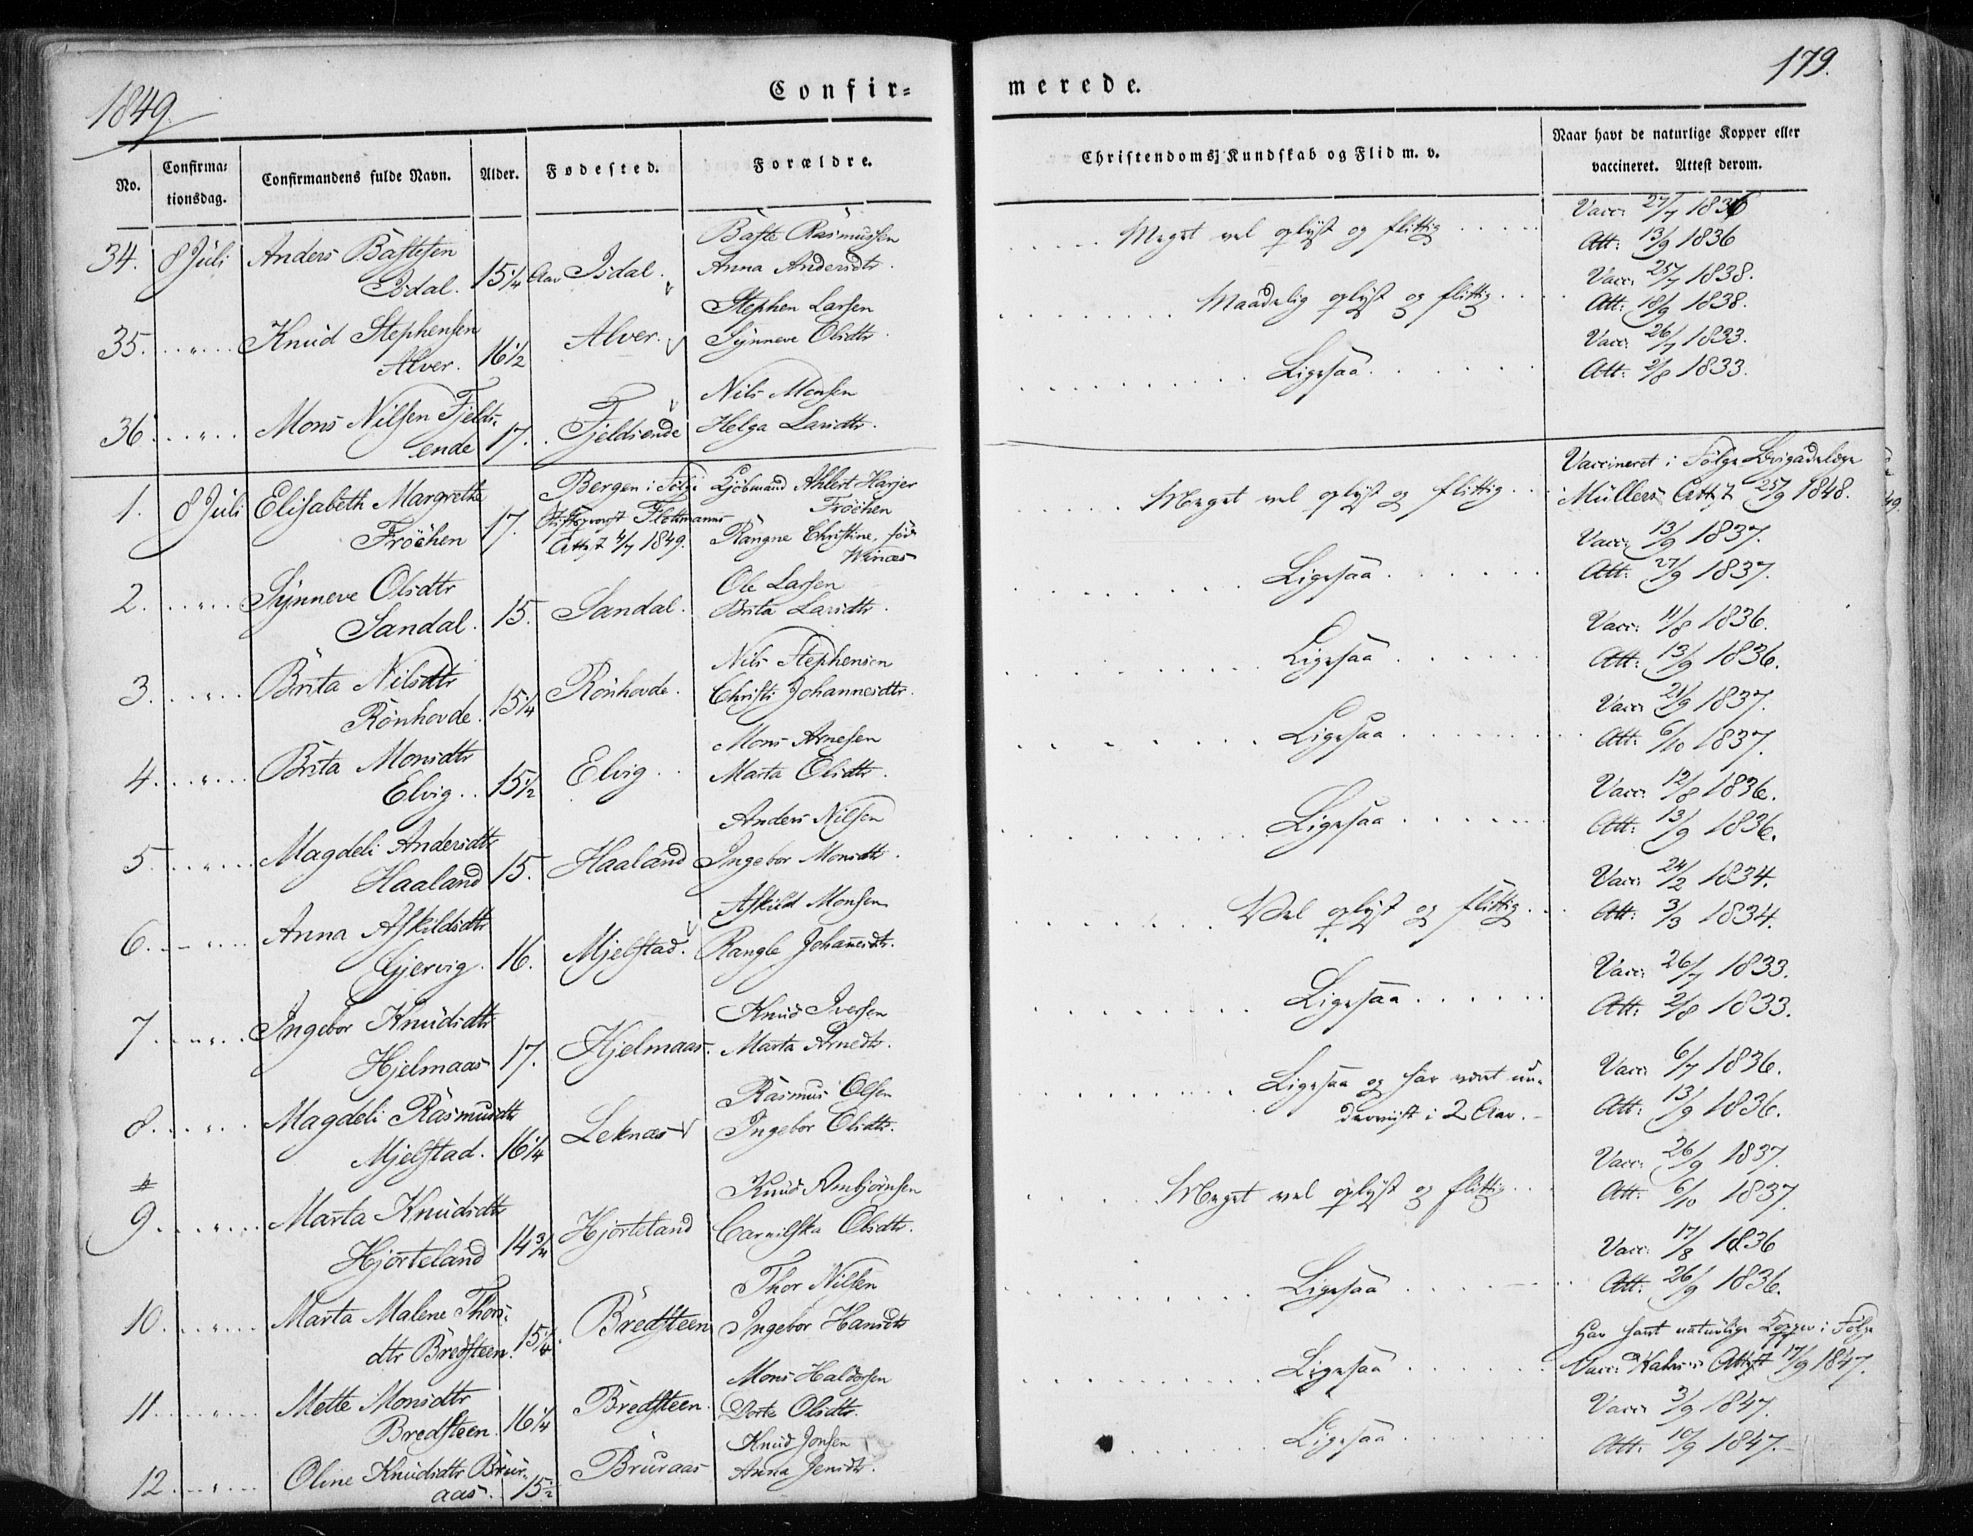 1849.
Confir-
merede.
179.
No.
Confirma-
tionsdag.
Confirmandens fulde Navn.
Alder.
Fødested.
Forældre.
Christendoms Kundskab og Flid m. v.
Naar havt de naturlige Kopper eller
vaccineret. Attest derom.
34. 8 Juli Anders Bastesen
Isdal. 15 1/4 Aar Isdal.
Baste Rasmussen
Anna Andersdtr.
Meget vel oplyst og flittig
Vacc: 27/7 1836
Att: 13/9 1836
35. " Knud Stephensen
Alver. 16 1/2 Alver.
Stephen Larsen
Synneve Olsdtr.
Maadelig oplyst og flittig
Vacc: 25/7 1838.
Att: 18/9 1838.
36. " Mons Nilsen Fjelds-
ende 17. Fjeldsende
Nils Monsen
Helga Larsdtr.
Ligesaa
Vacc: 26/7 1833.
Att: 2/8 1833.
1. 8 Juli Elisabeth Margrethe
Fröchen 17.
Bergen i Følge
Stiftsprovst Flottmanns
Att: 4/7 1849.
Kjöbmand Ahlert Harjer
Fröchen
Rangne Christine, föd
Meget vel oplyst og flittig
Vaccineret i Følge Brigadelæge
Müllers Att: 25/9 1848.
2. " Synneve Olsdtr
Sandal. 15. Sandal.
Ole Larsen
Brita Larsdtr.
Ligesaa
Vacc: 13/9 1837.
Att: 27/9 1837.
3. " Brita Nilsdtr
Rönhovde. 15 1/4 Rönhovde.
Nils Stephensen
Christi Johannesdtr.
Ligesaa
Vacc: 11/8 1836.
Att: 13/9 1836.
4. " Brita Monsdtr
Elvig. 15 1/2 Elvig.
Mons Arnesen
Marta Olsdtr.
Ligesaa
Vacc: 21/9 1837.
Att: 6/10 1837.
5. " Magdeli Andersdtr
Haaland 15. Haaland
Anders Nilsen
Ingebor Monsdtr.
Ligesaa
Vacc: 12/8 1836.
Att: 13/9 1836.
6. " Anna Askildsdtr
Gjervig. 16. Mjelstad.
Askild Monsen
Rangle Johannesdtr.
Vel oplyst og flittig
Vacc: 24/2 1834.
Att: 3/3 1834.
7. " Ingebor Knudsdtr
Hjelmaas 17. Hjelmaas.
Knud Iversen
Marta Arnedtr.
Ligesaa
Vacc: 26/7 1833.
Att: 2/8 1833.
8. " Magdeli Rasmusdtr
Mjelstad. 16 1/4 Leknæs
Rasmus Olsen
Ingebor Olsdtr.
Ligesaa og har været un-
derviist i 2 Aar.
Vacc: 6/7 1836.
Att: 13/9 1836.
#
9. " Marta Knudsdtr
Hjorteland 14 3/4 Hjorteland
Knud Ambjörnsen
Carnilska Olsdtr.
Meget vel oplyst og flittig
Vacc: 26/9 1837.
Att: 6/10 1837.
10. " Marta Malene Thors-
dtr Bredsteen. 15 1/4. Bredsteen
Thor Nilsen
Ingebor Hansdtr
Ligesaa
Vacc: 17/8 1836
Att: 26/9 1836.
11. " Mette Monsdtr
Bredsteen. 16 1/4 Bredsteen.
Mons Haldorsen
Dorte Olsdtr.
Ligesaa
Har havt naturlige Kopper i Følge
Vacc: Att: 17/9 1847.
12. " Oline Knudsdtr Brur-
aas. 15 1/2 Bruraas
Knud Jonsen
Anna Jensdtr.
Ligesaa
Vacc: 3/9 1847.
Att: 10/9 1847.